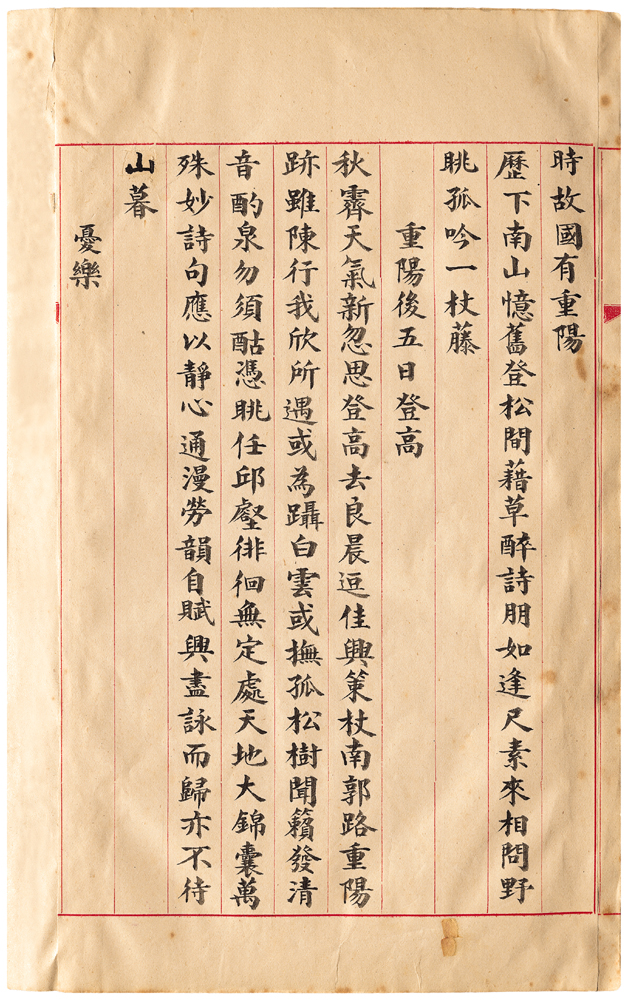 時故國有重陽
歷下南山憶舊登松間藉草醉詩朋如逢尺素來相問野
眺孤吟一杖藤
重陽後五日登高
秋霽天氣新忽思登高去良晨逗佳興策杖南郭路重陽
跡雖陳行我欣所遇或為躡白雲或撫孤松樹聞籟發清
音酌泉勿須酤憑眺任邱壑徘徊無定處天地大錦囊萬
殊妙詩句應以靜心通漫勞韻自賦興盡詠而歸亦不待
山暮
憂樂